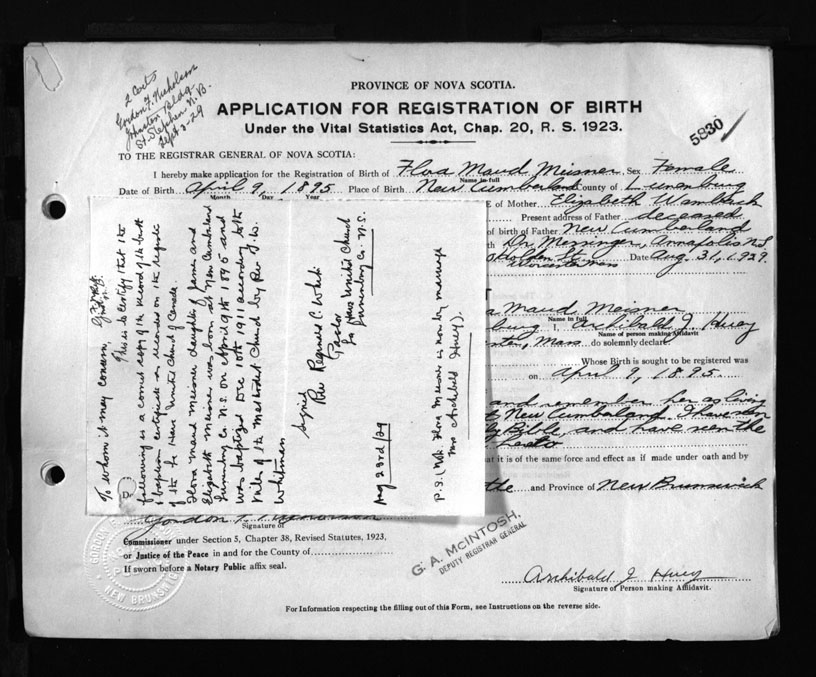 2 Certs
Gordon F. Nicholson
Johnston Bldg
St. Stephen N. B.
Sept 3-29
PROVINCE OF NOVA SCOTIA.
APPLICATION FOR REGISTRATION OF BIRTH
Under the Vital Statistics Act, Chap. 20, R. S. 1923.
5830
TO THE REGISTRAR GENERAL OF NOVA SCOTIA:
I hereby make application for the Registration of Birth of Flora Maud Meisner Sex Female
Name in full
Date of Birth April 9, 1895 Place of Birth New Cumberland County of Lunenburg
Month Day Year
E of Mother Elizabeth Wambach
Present address of Father deceased
of birth of Father New Cumberland
th Dr. Messinger, Annapolis N.S.
Holden St. Date Aug. 31, 1929.
Worcester Mass
a Maud Meisner
Name in full
burg I, Archibald J Huey
Name of person making Affidavit
ster, Mass do solemnly declare
Whose Birth is sought to be registered was
on April 9, 1895.
and remember her as living
New Cumberland. I have seen
ly Bible, and have seen the
at it is of the same force and effect as if made under oath and by
tte and Province of New Brunswick
To whom it may concern,
This is to certify that the
following is a correct copy of the record of the birth
& baptism certificate as recorded on the register
of the La Have United Church of Canada
Flora Maud Meisner daughter of James and
Elizabeth Meisner was born at New Cumberland
Lunenburg Co. N.S. on April 9th 1895 and
was baptized Dec 10th 1911 according to the
rules of the Methodist Church by Rev J. W.
Whitman
Signed
Rev Reginald C. White
Pastor
La Have United Church
Lunenburg Co. N.S.
Aug 23rd/29
P.S. (Note Flora Meisner is now by marriage
Mrs Archibald Huey).
Gordon F. Nicholson
Signature of
Commissioner under Section 5, Chapter 38, Revised Statutes, 1923,
or Justice of the Peace in and for the County of
If sworn before a Notary Public affix seal.
G. A. McINTOSH,
DEPUTY REGISTRAR GENERAL
Archibald J Huey
Signature of Person making Affidavit.
NEW BRUNSWICK
For Information respecting the filling out of this Form, see Instructions on the reverse side.